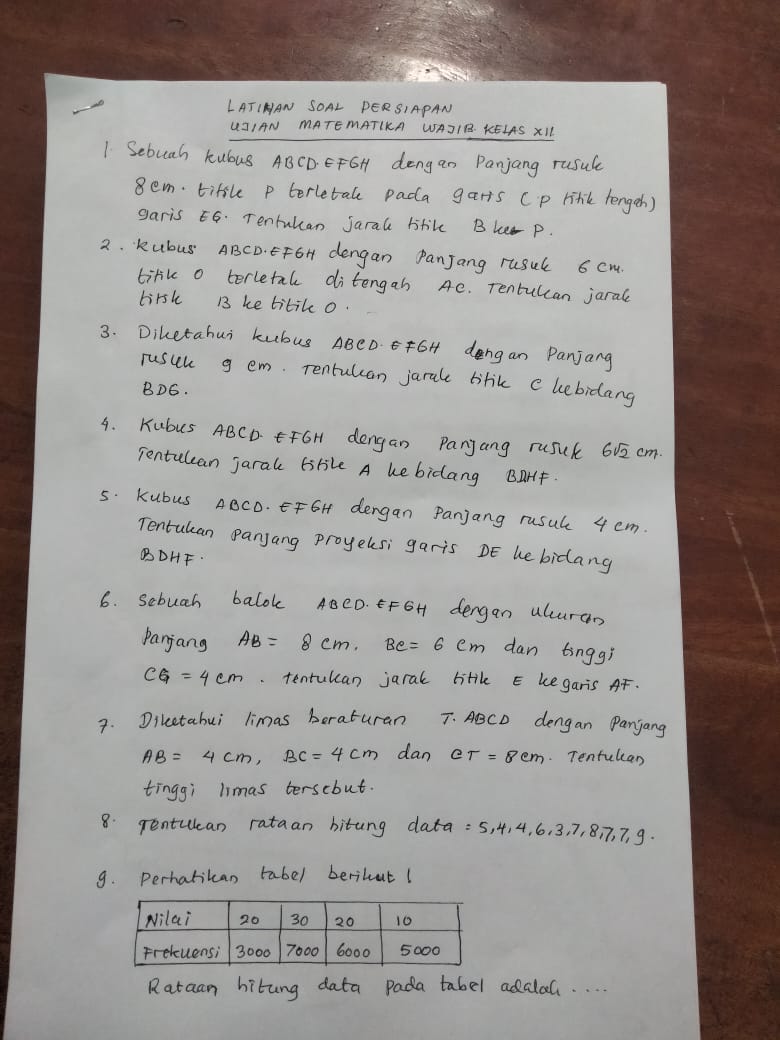 LATIHAN SOAL PERSIAPAN
UJIAN MATEMATIKA WAJIB KELAS XII
1. Sebuah kubus ABCD.EFGH dengan Panjang rusuk
8 cm. titik P terletak pada garis (P titik tengah)
garis EG. Tentukan jarak titik B ke P.
2. Kubus ABCD.EFGH dengan Panjang rusuk 6 cm.
titik O terletak di tengah AC. Tentukan jarak
titik B ke titik O.
3. Diketahui kubus ABCD.EFGH dengan Panjang
rusuk 9 cm. Tentukan jarak titik C ke bidang
BDG.
4. Kubus ABCD.EFGH dengan Panjang rusuk 6√2 cm.
Tentukan jarak titik A ke bidang BDHF.
5. Kubus ABCD.EFGH dengan Panjang rusuk 4 cm.
Tentukan panjang proyeksi garis DE ke bidang
BDHF.
6. Sebuah balok ABCD.EFGH dengan ukuran
Panjang AB = 8 cm, BC = 6 cm dan tinggi
CG = 4 cm. tentukan jarak titik E ke garis AF.
7. Diketahui limas beraturan T.ABCD dengan Panjang
AB = 4 cm, BC = 4 cm dan CT = 8 cm. Tentukan
tinggi limas tersebut.
8. Tentukan rataan hitung data = 5,4,4,6,3,7,8,7,7,9.
9. Perhatikan tabel berikut!
Nilai 20 30 20 10
Frekuensi 3000 7000 6000 5000
Rataan hitung data pada tabel adalah ....